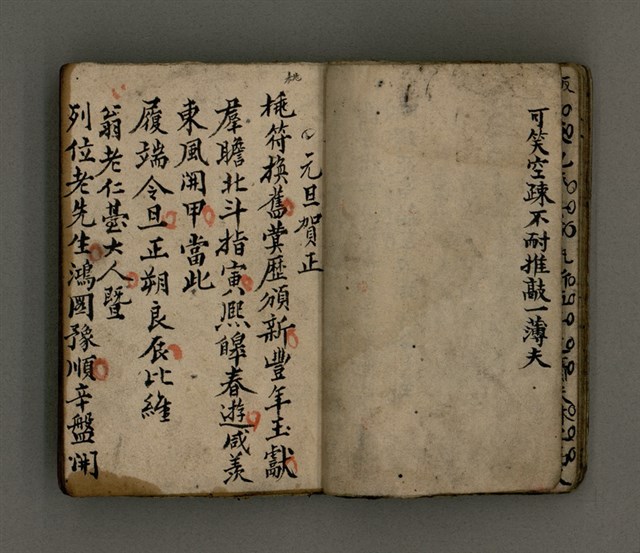 可笑空疎不耐推敲一薄夫
元旦賀正
桃
桃符換舊蓂歷頒新豐年玉獻
羣瞻北斗指寅熙皞春遊咸羨
東風開甲當此
履端令旦正朔良辰比維
翁老仁臺大人暨
列位老先生鴻圖豫順辛盤開